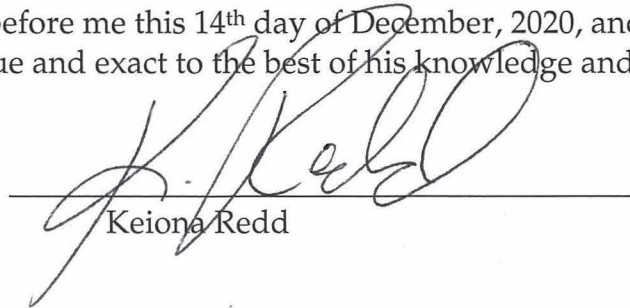 before me this 14th day of December, 2020, and
ue and exact to the best of his knowledge and
K. Redd
Keiona Redd